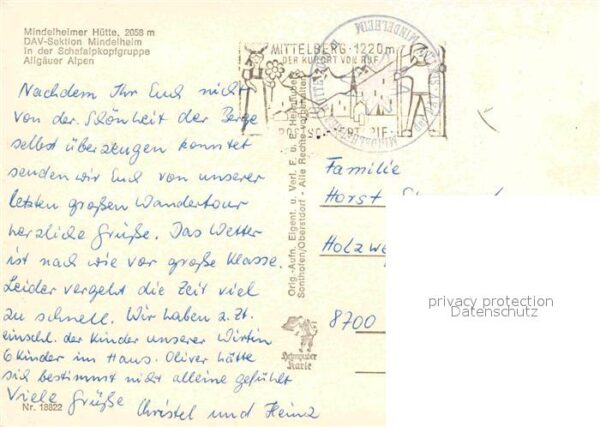 Mindelheimer Hütte, 2058 m
DAV-Sektion Mindelheim
in der Schafalpkopfgruppe
Allgäuer Alpen
MITTELBERG · 1220 m
DER KURORT VON RUF
MINDELHEIM
Nachdem Ihr Euch nicht
von der Schönheit der Berge
selbst überzeugen konntet
senden wir Euch von unserer
letzten großen Wandertour
herzliche Grüße. Das Wetter
ist nach wie vor große Klasse.
Leider vergeht die Zeit viel
zu schnell. Wir haben z. Zt.
einschl. der Kinder unserer Wirtin
6 Kinder im Haus. Oliver hätte
sich bestimmt nicht alleine gefühlt
Viele Grüße
Christel und Heinz
Nr. 18822
Orig.-Aufn., Eigent. u. Verl. F. u. E.
Sonthofen/Oberstdorf - Alle Rechte vorbehalten
Karte
Familie
Horst
8700
privacy protection
Datenschutz